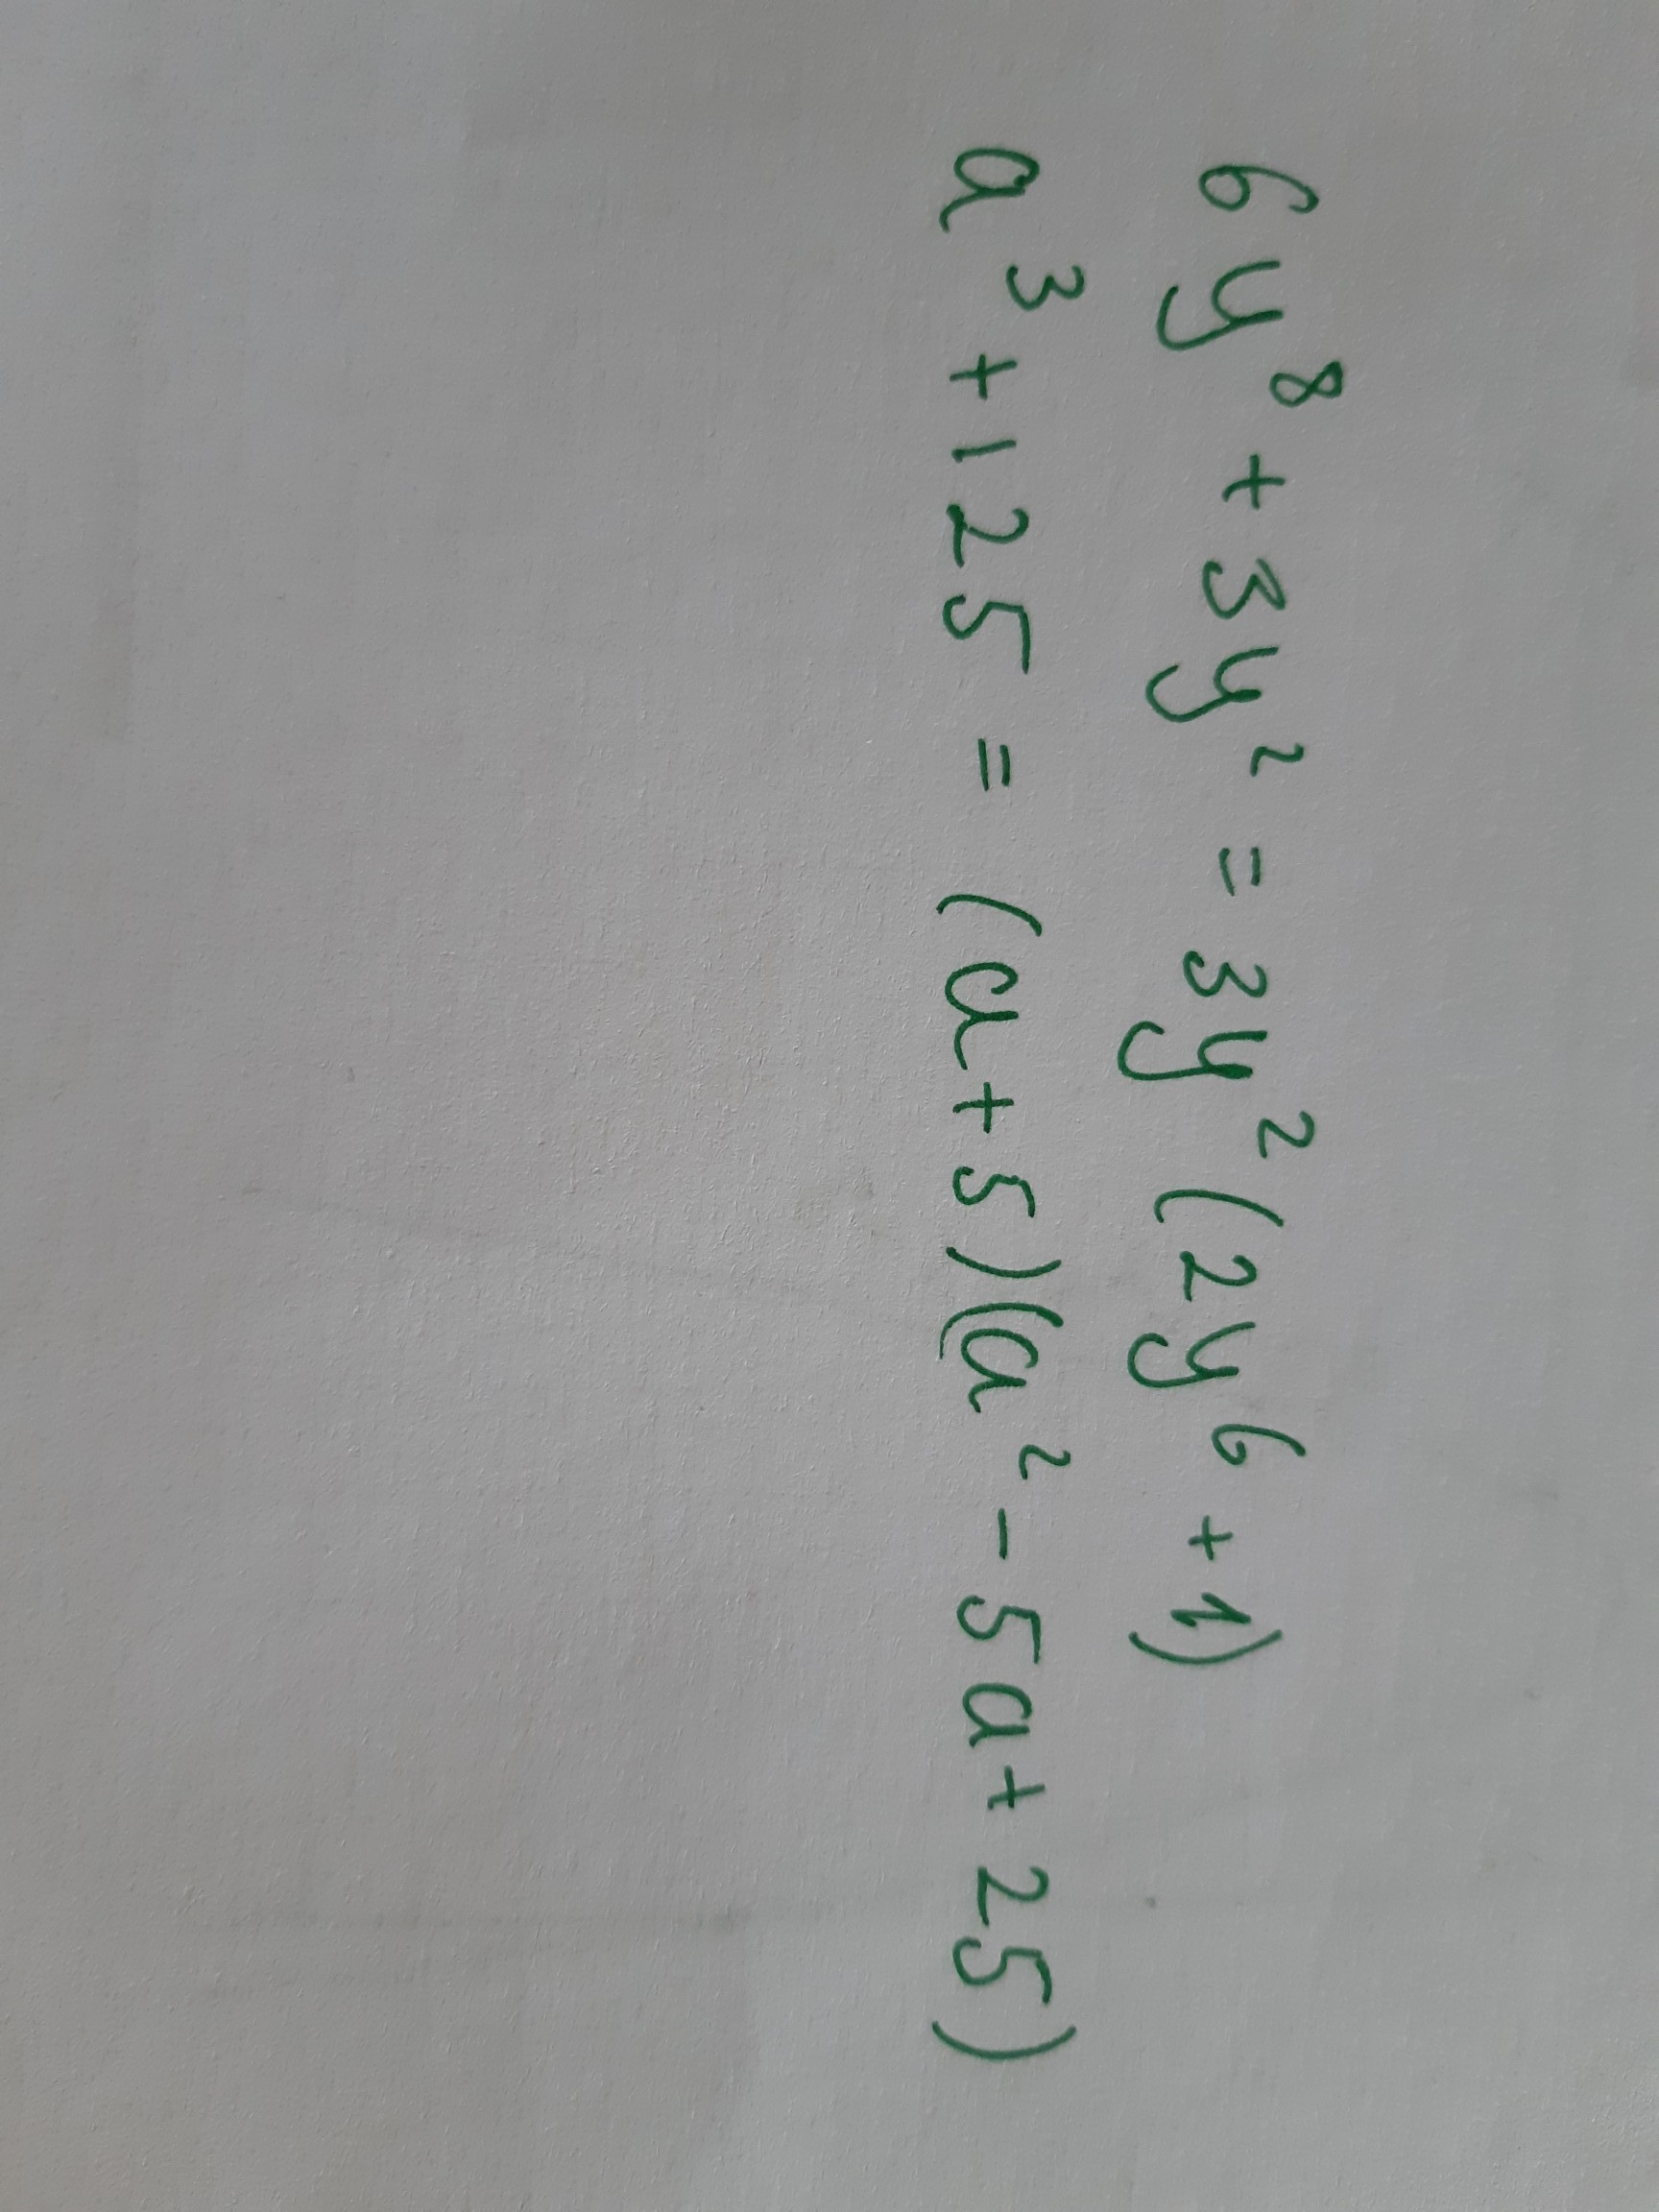 6y⁸ + 3y² = 3y²(2y⁶ + 1)
a³ + 125 = (a + 5)(a² - 5a + 25)